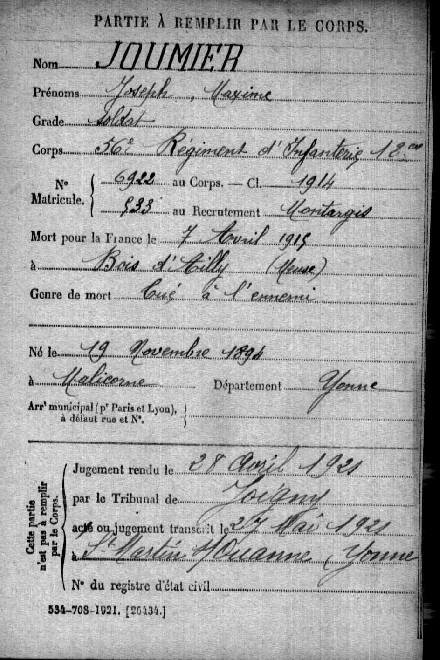 PARTIE À REMPLIR PAR LE CORPS.
Nom JOUMIER
Prénoms Joseph, Maxime
Grade Soldat
Corps 56e Regiment d'Infanterie
N° Matricule. 6922 au Corps. — Cl. 1914
533 au Recrutement Montargis
Mort pour la France le 7 Avril 1915
à Bois d'Ailly (Meuse)
Genre de mort Tué à l'ennemi
Né le 19 Novembre 1894
à Malicorne Département Yonne
Arrt municipal (pr Paris et Lyon),
à défaut rue et N°.
Cette partie n'est pas à remplir par le Corps.
Jugement rendu le 28 Avril 1921
par le Tribunal de Joigny
acte ou jugement transcrit le 27 Mai 1921
à St Martin s/Ouanne, Yonne
N° du registre d'état civil
534-708-1921. [26434.]